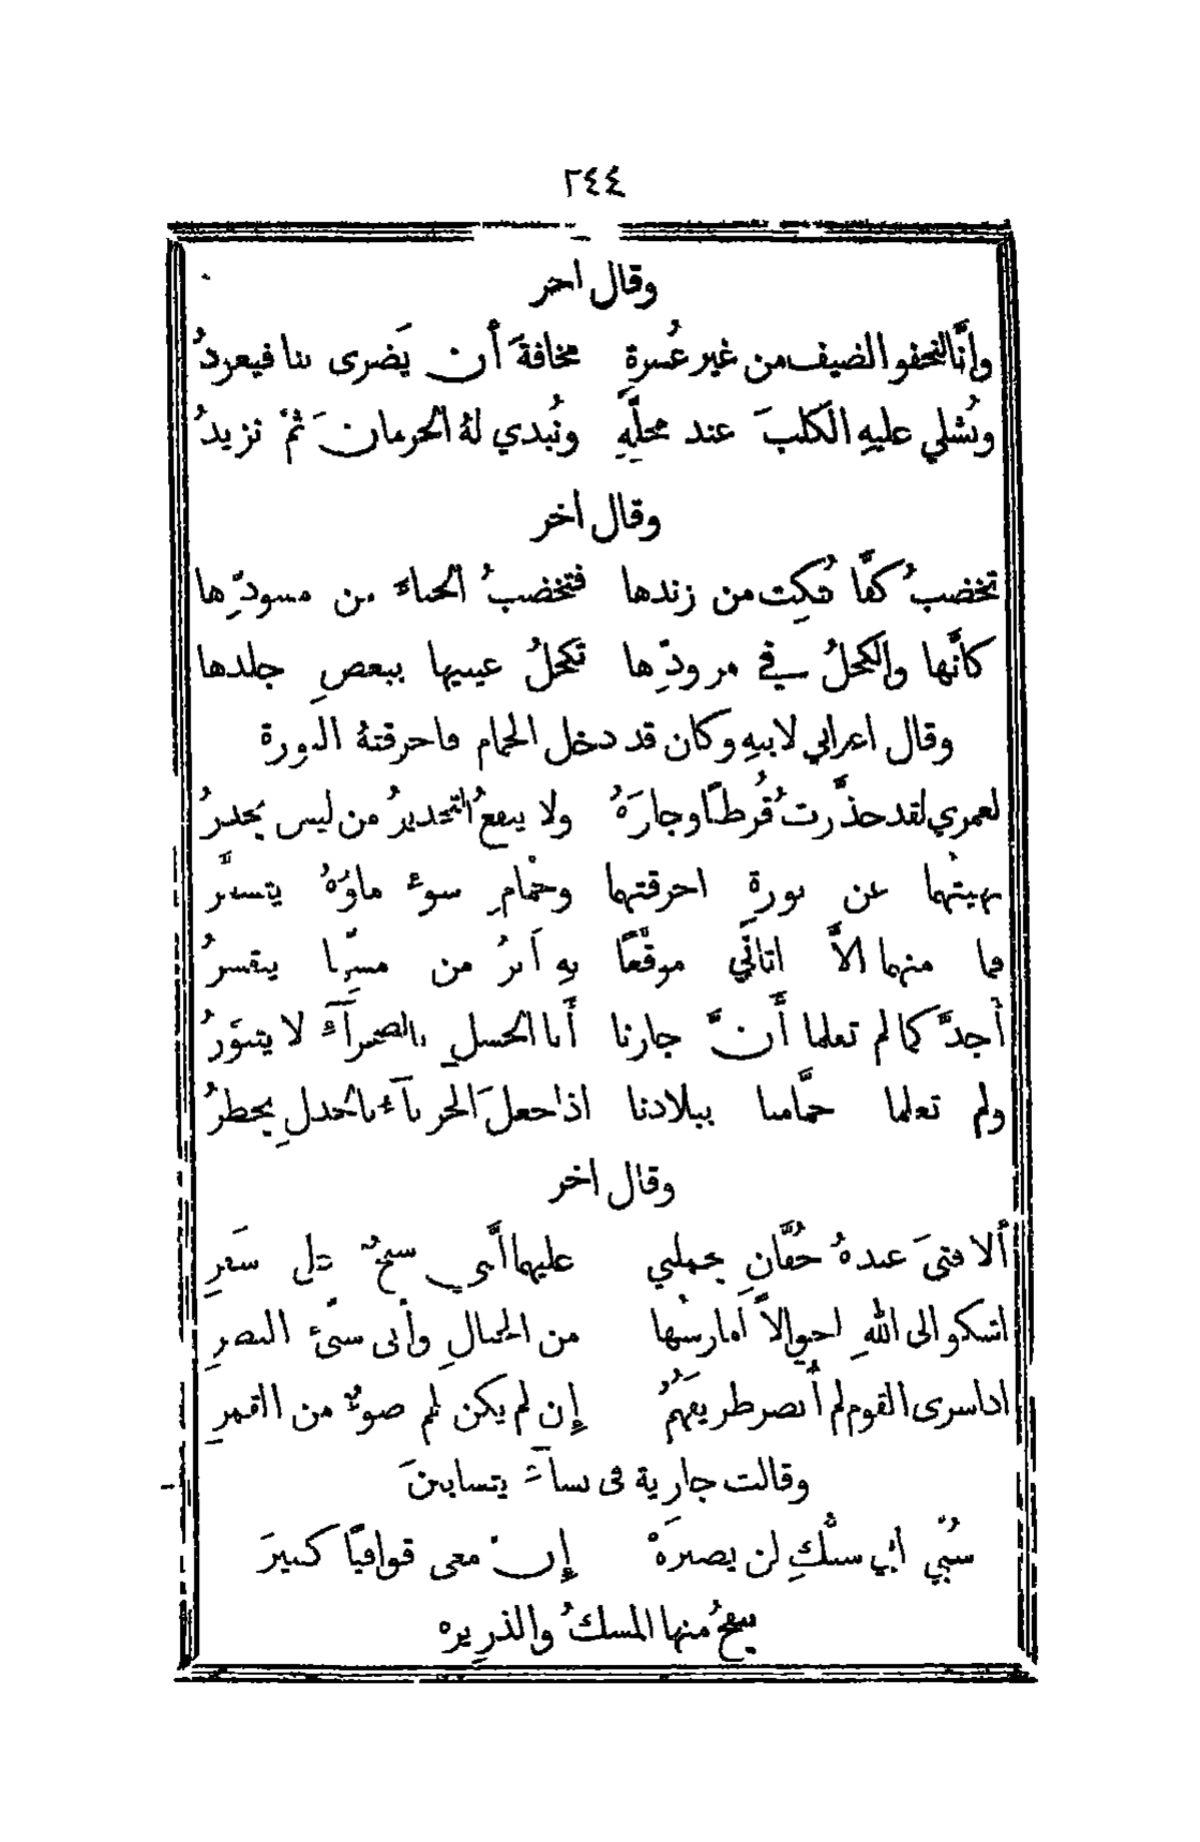 ٢٤٤
وقال آخر
وإنَّا لنجفو الضيف من غير عُسرةٍ مخافةَ أن يَضرى بنا فيعودُ
ونُشلي عليهِ الكلبَ عند محلِّهِ ونُبدي لهُ الحرمانَ ثمَّ نزيدُ
وقال آخر
تخضبُ كفًّا بُتكِت من زندها فتخضبُ الحناءَ من مسودِّها
كأنَّها والكحلُ في مرودِّها تكحلُ عينيها ببعضِ جلدها
وقال اعرابي لابنهِ وكان قد دخل الحمام فاحرقتهُ النورة
لعمري لقد حذَّرتُ قُرطًا وجارَهُ ولا ينفعُ التحذيرُ من ليس يحذرُ
نهيتُهما عن نورةٍ احرقتهما وحمَّامِ سوءٍ ماؤُهُ يتسعَّرُ
فما منهما الاَّ اتاني موقَّعًا بهِ أثرٌ من مسِّها يتقشرُ
أجدَّكما لم تعلما أنَّ جارنا أبا الحسلِ بالصحراءِ لا يتنوَّرُ
ولم تعلما حمَّامنا ببلادنا اذا جعلَ الحرباءُ بالجذلِ يخطرُ
وقال آخر
ألا فتىً عندهُ خُفَّانِ يحملني عليهما انَّني شيخٌ على سَفَرِ
اشكو الى اللهِ احوالاً أمارسُها من الجبالِ وأنّى سيّئُ البصرِ
اذا سرى القوم لم أُبصر طريقَهُمُ إن لم يكن لهم ضوءٌ من القمرِ
وقالت جارية في نساءٍ يتسابينَ
سُبّي أبي سبُّكِ لن يضيرَهْ إنَّ معى قوافيًا كثيرَه
ينفحُ منها المسكُ والذريره